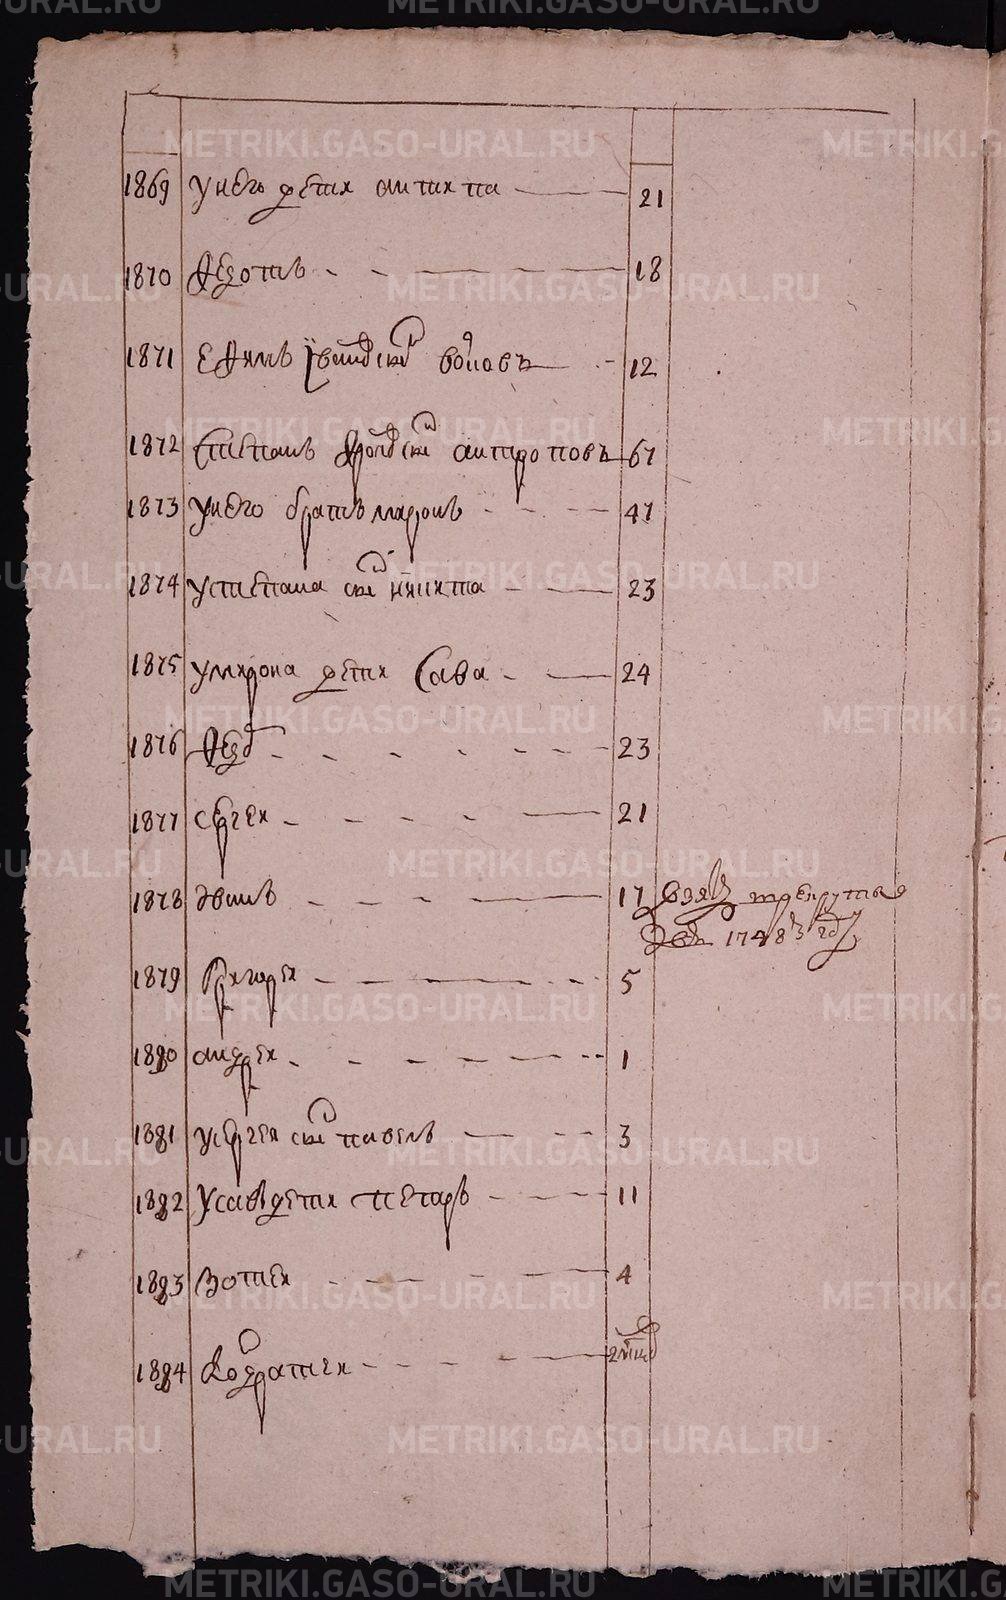 1869 У него дети антипа 21
1870 Федотъ 18
1871 Ефимъ Ивановъ снъ 12
1872 Степанъ снъ антроповъ 67
1873 У него братъ миронъ 47
1874 У степана снъ никита 23
1875 У мирона дети Сава 24
1876 Федо 23
1877 сергеи 21
1878 Иванъ 17 взятъ в рекруты
в 1748 году
1879 Григореи 5
1880 андреи 1
1881 У сергея снъ павелъ 3
1882 У савы дети петръ 11
1883 Фотеи 4
1884 Кодратеи 2 мсцы
METRIKI.GASO-URAL.RU